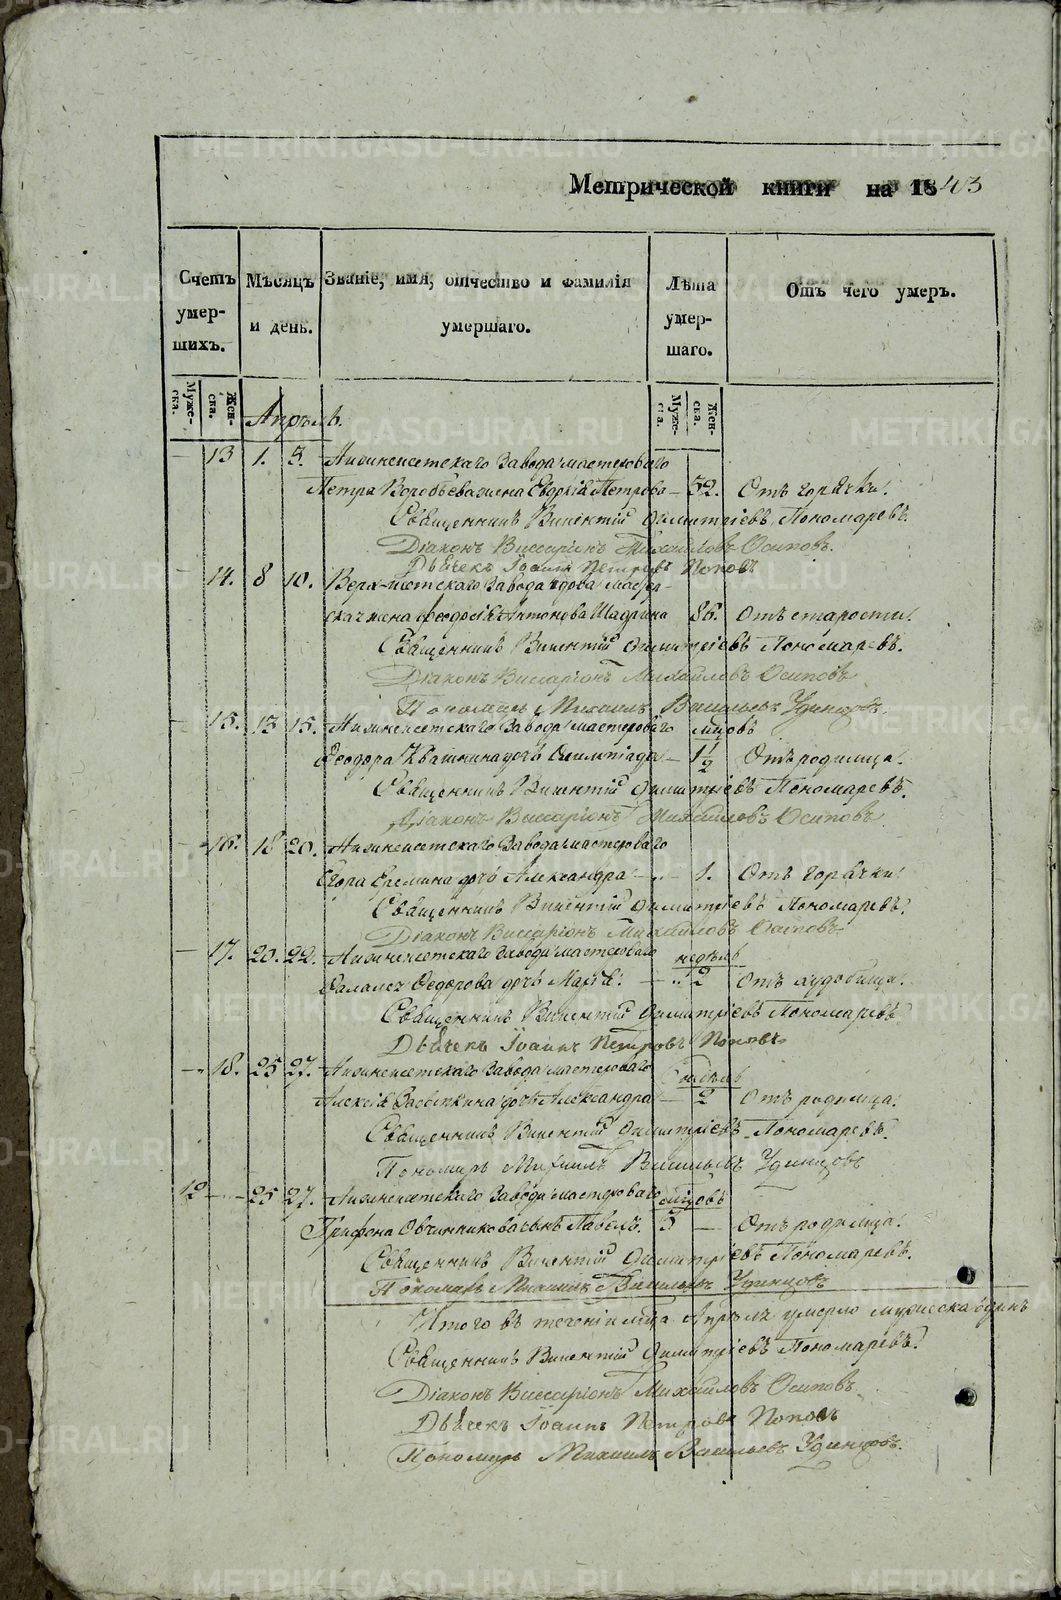 Метрической книги на 1843
Счетъ умерших. Мѣсяцъ и день. Званіе, имя, отчество и фамилія умершаго. Лѣта умершаго. Отъ чего умеръ.
Мужеска. Женска. Мужеска. Женска.
Апрѣль.
13 1. 3. Нижнеисетскаго завода мастероваго
Петра Воробьева жена Евдокія Петрова — 52. Отъ горячки.
Священникъ Викентій Димитріевъ Пономаревъ.
Діаконъ Виссаріонъ Михайловъ Осиповъ.
Дьячекъ Іоаннъ Петровъ Поповъ
14. 8 10. Верх-исетскаго завода вдова мастер-
ская жена Феодосія Антонова Шадрина 86. Отъ старости.
Священникъ Викентій Димитріевъ Пономаревъ.
Діаконъ Виссаріонъ Михайловъ Осиповъ
Пономарь Михаилъ Васильевъ Удинцовъ.
15. 13 15. Нижнеисетскаго завода мастероваго мцовъ
Феодора Квашнина дочь Олимпіада — 1 1/2 Отъ родимца.
Священникъ Викентій Димитріевъ Пономаревъ.
Діаконъ Виссаріонъ Михайловъ Осиповъ
16. 18 20. Нижнеисетскаго завода мастероваго
Егора Еремина дочь Александра — 1. Отъ горячки.
Священникъ Викентій Димитріевъ Пономаревъ.
Діаконъ Виссаріонъ Михайловъ Осиповъ
17. 20. 22. Нижнеисетскаго завода мастероваго недѣль
Федорова дочь Марія. — 2 Отъ худобища.
Священникъ Викентій Димитріевъ Пономаревъ.
Дьячекъ Іоаннъ Петровъ Поповъ
18. 25 27. Нижнеисетскаго завода мастероваго недѣль
Алексія Засыпкина дочь Александра — 2 Отъ родимца.
Священникъ Викентій Димитріевъ Пономаревъ.
Пономарь Михаилъ Васильевъ Удинцовъ
12 — 25 27. Нижнеисетскаго завода мастероваго мцовъ
Трифона Овчинникова сынъ Павелъ. 3 — Отъ родимца.
Священникъ Викентій Димитріевъ Пономаревъ.
Пономарь Михаилъ Васильевъ Удинцовъ
Итого въ теченіи мца Апрѣля умерло мужеска одинъ
Священникъ Викентій Димитріевъ Пономаревъ.
Діаконъ Виссаріонъ Михайловъ Осиповъ.
Дьячекъ Іоаннъ Петровъ Поповъ
Пономарь Михаилъ Васильевъ Удинцовъ.
METRIKI.GASO-URAL.RU